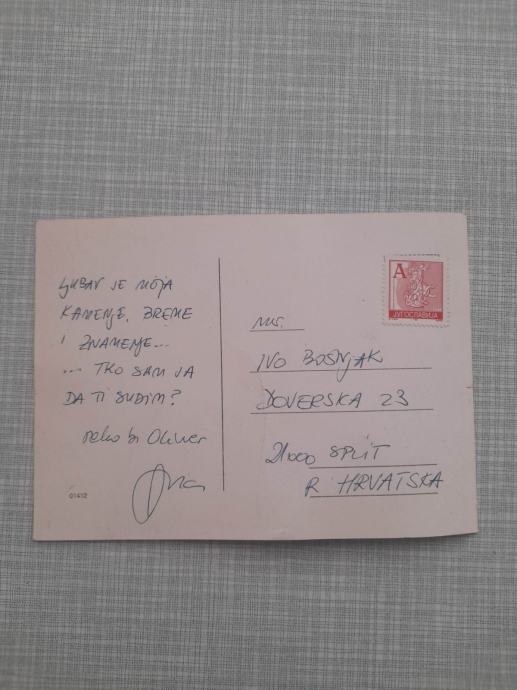 LJUBAV JE MOJA
KAMENJE, BREME
I ZNAMENJE...
... TKO SAM JA
DA TI SUDIM?
rekao bi Oliver
01412
A
ЈУГОСЛАВИЈА
IVO BOŠNJAK
DOVERSKA 23
21000 SPLIT
R HRVATSKA